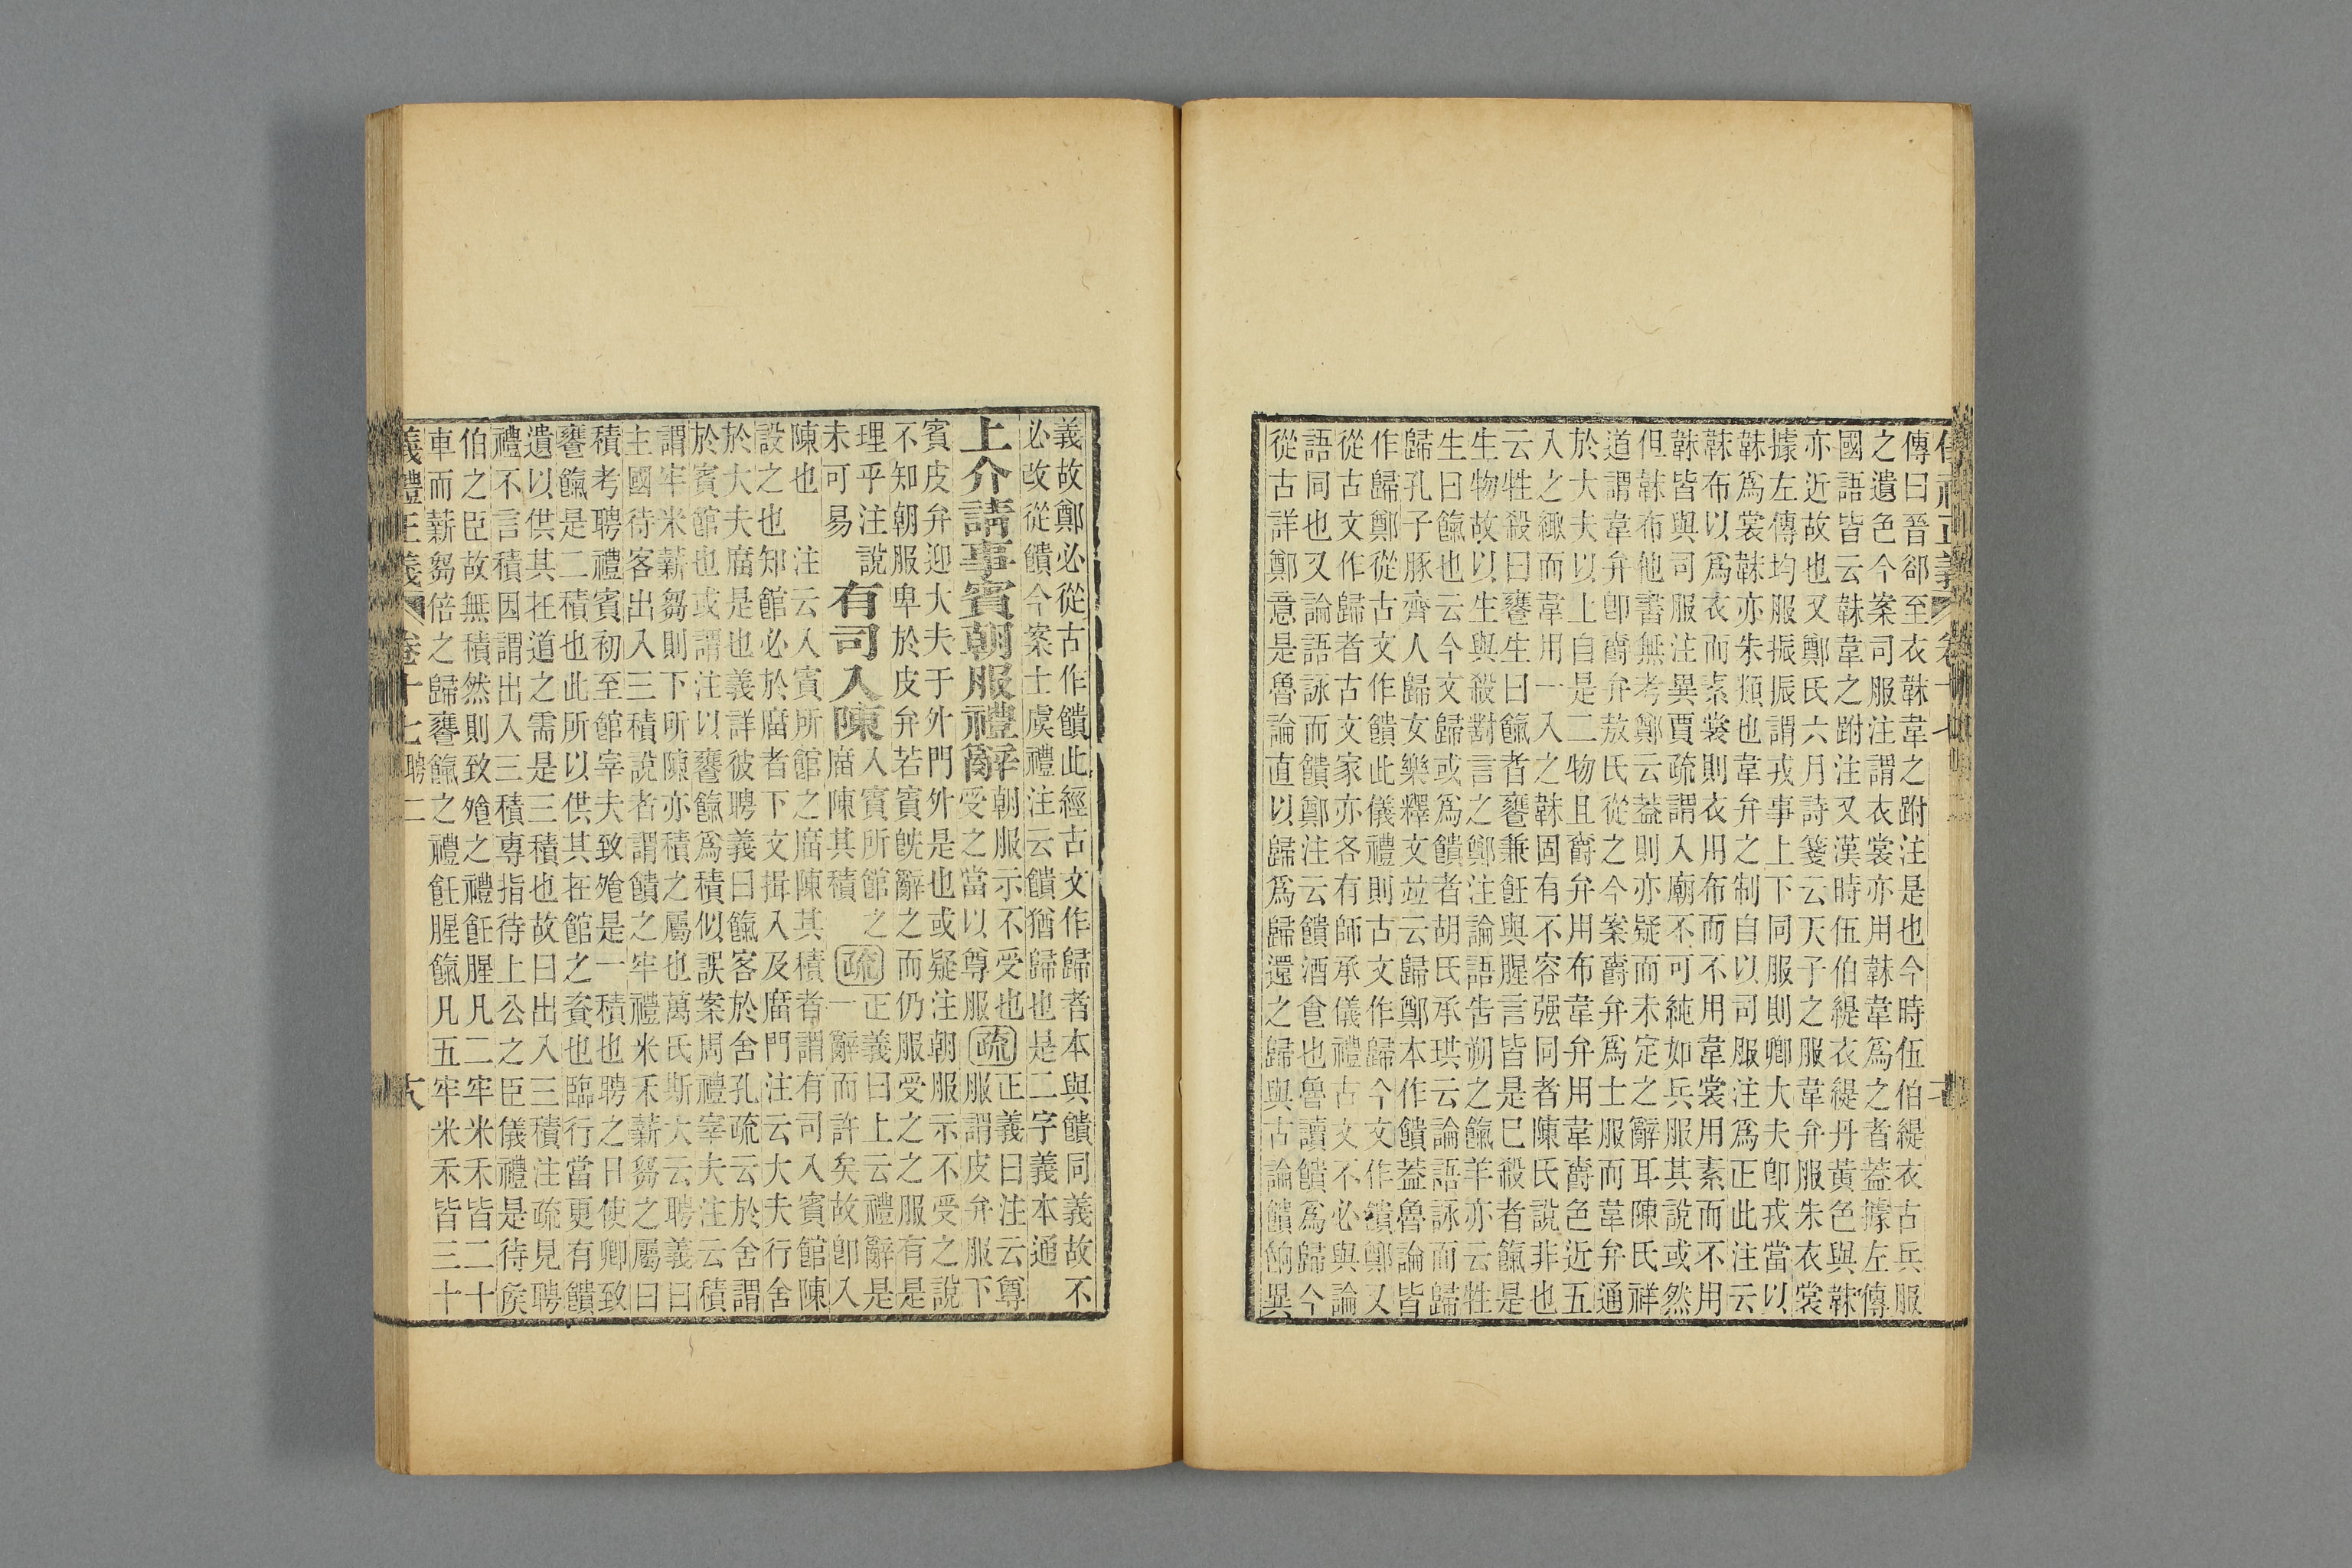 傳曰晉郤至衣韎韋之跗注是也今時伍伯緹衣古兵服
之遺色今案司服注謂衣裳亦用韎韋爲之者蓋據左傳
國語皆云韎韋之跗注又漢時伍伯緹衣緹丹黃色與韎
亦近故也又鄭氏六月詩箋云天子之服韋弁服朱衣裳
據左傳均服振振謂戎事上下同服則卿大夫卽戎當以
韎爲裳韎亦朱類也韋弁之制自以司服注爲正此注云
韎布以爲衣而素裳則衣用布而不用韋裳用素而不用
韎皆與司服注異賈疏謂入廟不可純如兵服其說或然
但韎布他書無考鄭云蓋則亦疑而未定之辭耳陳氏祥
道謂韋弁卽爵弁敖氏從之今案爵弁爲士服而韋弁通
於大夫以上自是二物且爵弁用布韋弁用韋爵色近五
入之緅而韋用一入之韎固有不容强同者陳氏說非也
云牲殺曰饔生曰餼者饔兼飪與腥言皆是已殺者餼是
生物故以生與殺對言之鄭注論語告朔之餼羊亦云牲
生曰餼也云今文歸或爲饋者胡氏承珙云論語詠而歸
歸孔子豚齊人歸女樂釋文竝云歸鄭本作饋蓋魯論皆
作歸鄭從古文作饋此儀禮則古文作歸今文作饋鄭又
從古文作歸者古文家亦各有師承儀禮古文不必與論
語同也又論語詠而饋鄭注云饋酒食也魯讀饋爲歸今
從古詳鄭意是魯論直以歸爲歸還之歸與古論饋餉異
義故鄭必從古作饋此經古文作歸者本與饋同義故不
必改從饋今案士虞禮注云饋猶歸也是二字義本通
上介請事賓朝服禮辭 朝服示不受也受之當以尊服 疏 正義曰注云尊服謂皮弁服下
賓皮弁迎大夫于外門外是也或疑注朝服示不受之說
不知朝服卑於皮弁若賓旣辭之而仍服受之之服有是
理乎注說未可易
有司入陳 入賓所館之廟陳其積 疏 正義曰上云禮辭是一辭而許矣故卽入
陳也 注云入賓所館之廟陳其積者謂有司入賓館陳
設之也知館必於廟者下文揖入及廟門注云大夫行舍
於大夫廟是也義詳彼聘義曰餼客於舍孔疏云於舍謂
於賓館也或謂注以饔餼爲積似誤案周禮宰夫注云積
謂牢米薪芻則下所陳亦積之屬也萬氏斯大云聘義曰
主國待客出入三積說者謂饋之牢禮米禾薪芻之屬曰
積考聘禮賓初至館宰夫致飧是一積也聘之日使卿致
饔餼是二積也此所以供其在館之賚也臨行當更有饋
遺以供其在道之需是三積也故曰出入三積注疏見聘
禮不言積因謂出入三積專指待上公之臣儀禮是待侯
伯之臣故無積然則致飧之禮飪腥凡二牢米禾皆二十
車而薪芻倍之歸饔餼之禮飪腥餼凡五牢米禾皆三十
義禮正義 卷十七 聘二